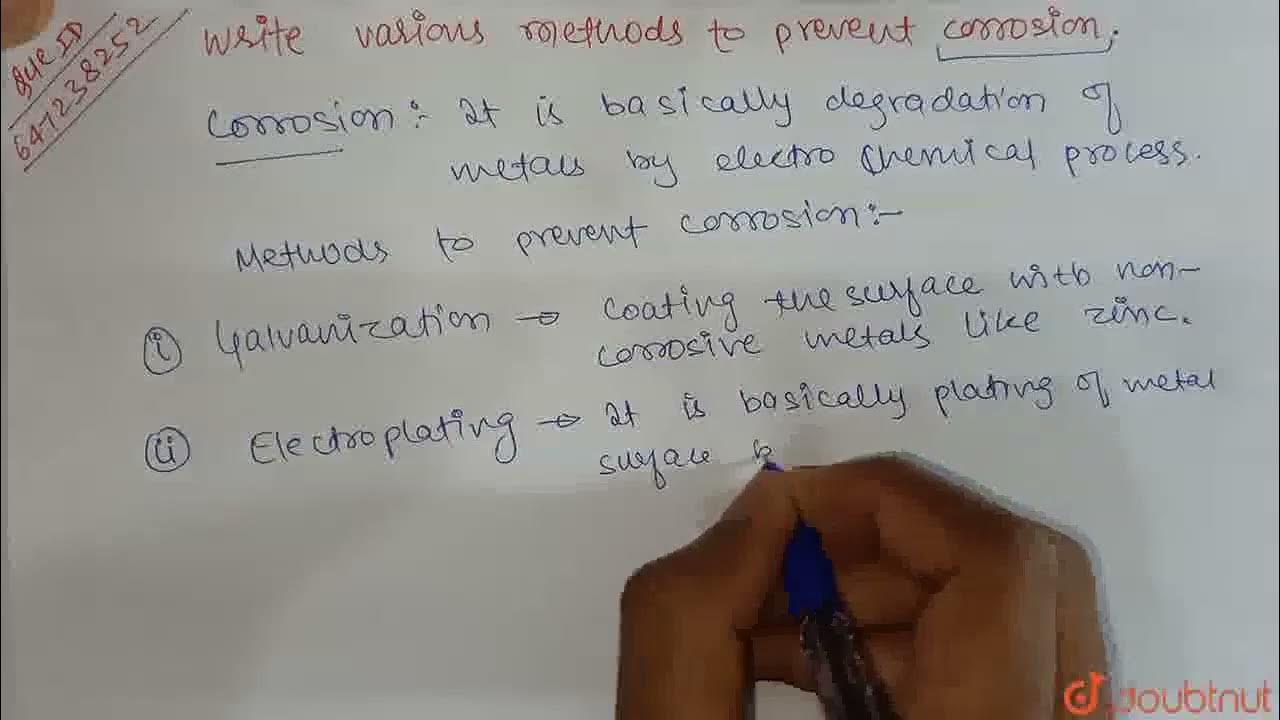 Que ID
647238252
Write various methods to prevent corrosion.
Corrosion:- It is basically degradation of
metals by electro chemical process.
Methods to prevent corrosion:-
(i) Galvanization → Coating the surface with non-
corrosive metals like zinc.
(ii) Electroplating → It is basically plating of metal
surface b
doubtnut